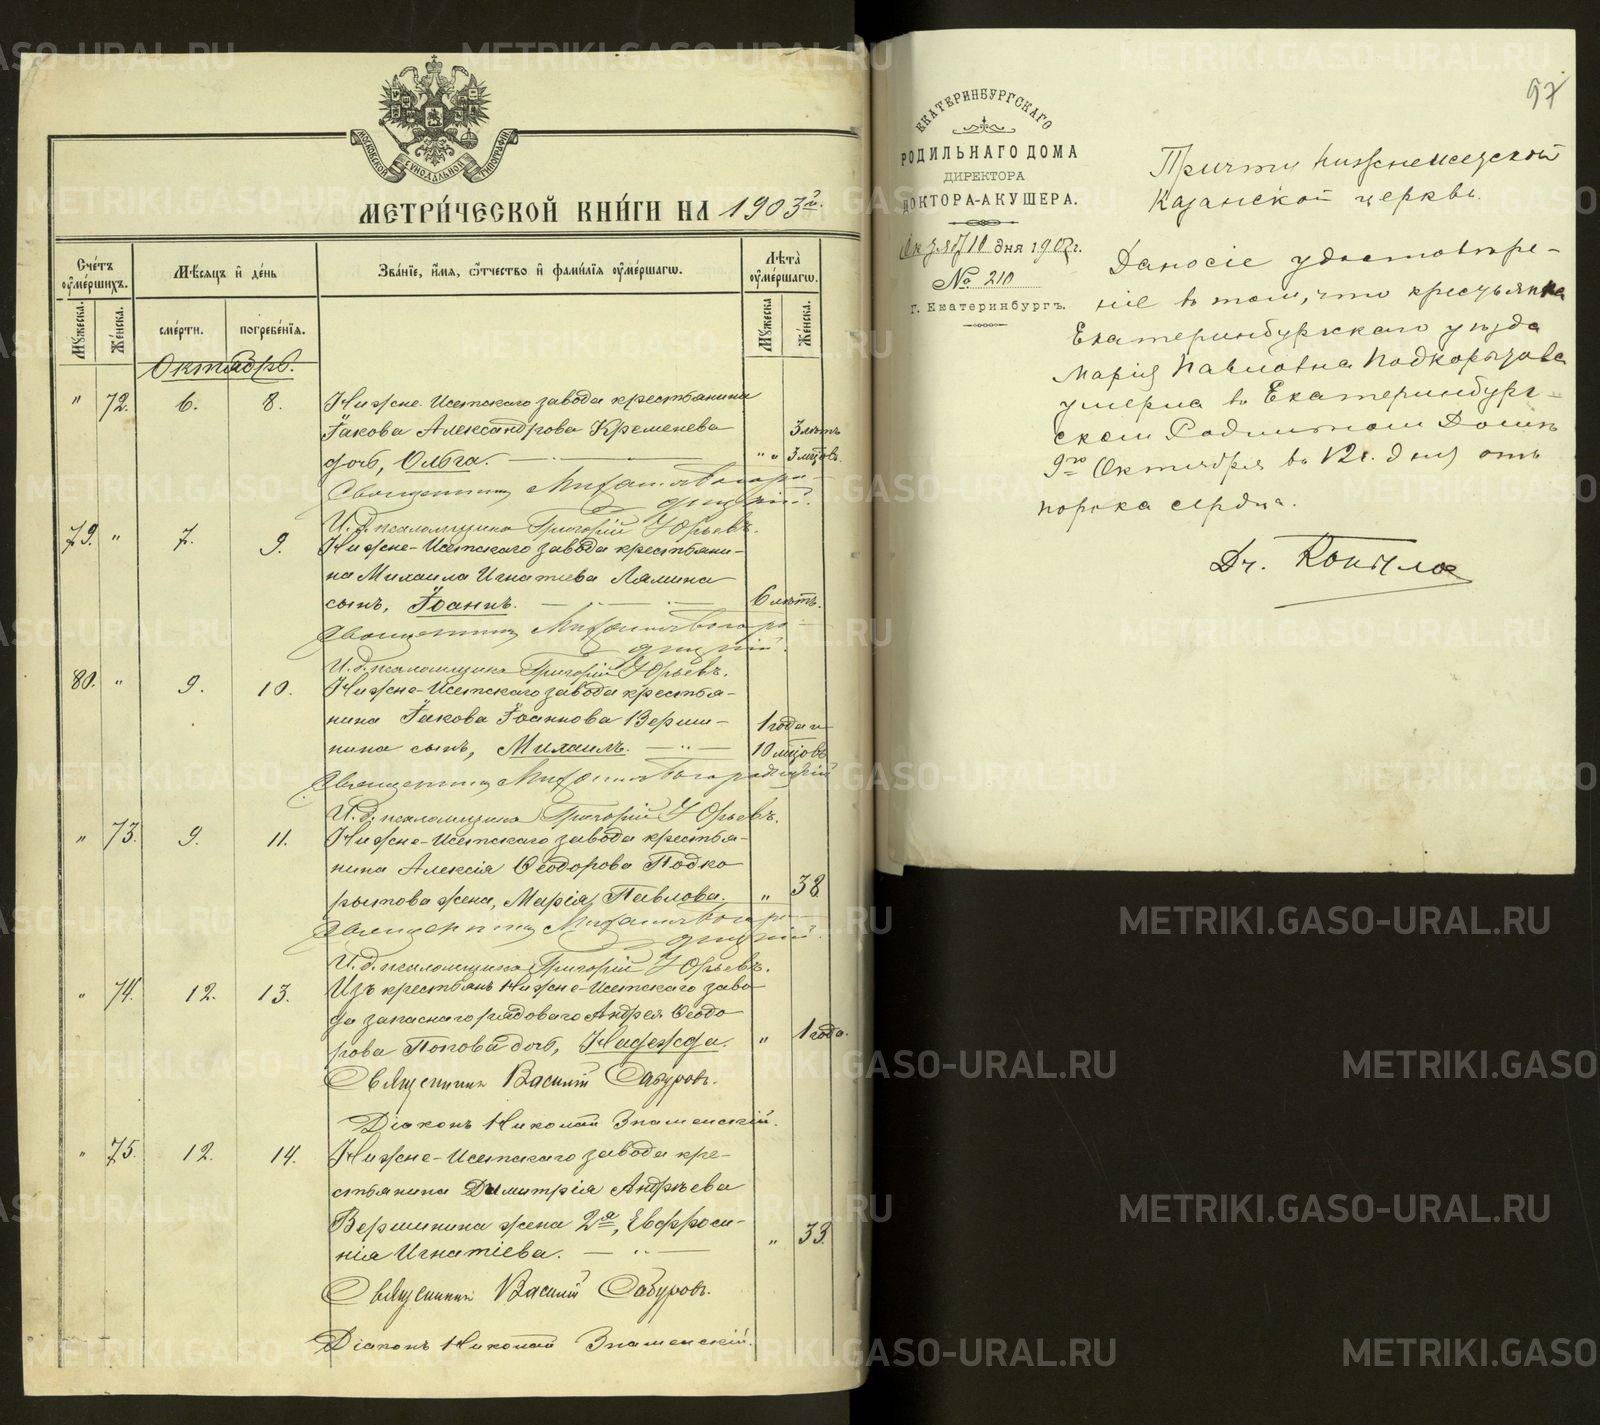 МОСКОВСКОЙ СѴНОДАЛЬНОЙ ТИПОГРАФІИ
МЕТРИ́ЧЕСКОЙ КНИ́ГИ НА 1903й.
Счетъ ᲂумершихъ.
Мѣсяцъ и день
Званїе, имя, ѿчество и фамилїя ᲂумершагѡ.
Лѣта ᲂумершагѡ.
Мꙋжеска.
Женска.
смерти.
погребенїя.
Мꙋжеска
Женска.
Октябрь.
" 72. 6. 8. Нижне-Исетскаго завода крестьянина
Іакова Александрова Кременева 3 лѣтъ
дочь, Ольга. " " 3 мѣцовъ.
Священникъ Михаилъ Богоро-
дицкій.
И. д. псаломщика Григорій Юрьевъ.
79. " 7. 9. Нижне-Исетскаго завода крестьяни-
на Михаила Игнатіева Лямина
сынъ, Іоаннъ. 6 лѣтъ.
Священникъ Михаилъ Богоро-
дицкій.
И. д. псаломщика Григорій Юрьевъ.
80. " 9. 10. Нижне-Исетскаго завода крестья-
нина Іакова Іоаннова Верши- 1 года и
нина сынъ, Михаилъ. 10 мѣцовъ
Священникъ Михаилъ Богородицкій
И. д. псаломщика Григорій Юрьевъ.
" 73. 9. 11. Нижне-Исетскаго завода крестья-
нина Алексія Ѳеодорова Подко
рытова жена, Марія Павлова. " 38
Священникъ Михаилъ Богоро-
дицкій.
И. д. псаломщика Григорій Юрьевъ.
" 74. 12. 13. Изъ крестьянъ Нижне-Исетскаго заво-
да запаснаго рядоваго Андрея Ѳеодо
рова Попова дочь, Надежда. " 1 года.
Священникъ Василій Сабуровъ.
Діаконъ Николай Знаменскій.
" 75. 12. 14. Нижне-Исетскаго завода кре-
стьянина Димитрія Андреева
Вершинина жена 2я, Евфроси-
нія Игнатіева. " 33.
Священникъ Василій Сабуровъ.
Діаконъ Николай Знаменскій.
97
ЕКАТЕРИНБУРГСКАГО
РОДИЛЬНАГО ДОМА
ДИРЕКТОРА
ДОКТОРА-АКУШЕРА.
Октяб 10 дня 1903 г.
№ 210
г. Екатеринбургъ.
Причту Нижнеисетской
Казанской церкви.
Даносіе удостовѣре-
ніе въ томъ, что крестьянка
Екатеринбургскаго уѣзда
Марія Павловна Подкорытова
умерла въ Екатеринбург-
скомъ Родильномъ Домѣ
9го Октября въ 12 ч. дня отъ
порока сердца.
Дч.
METRIKI.GASO-URAL.RU